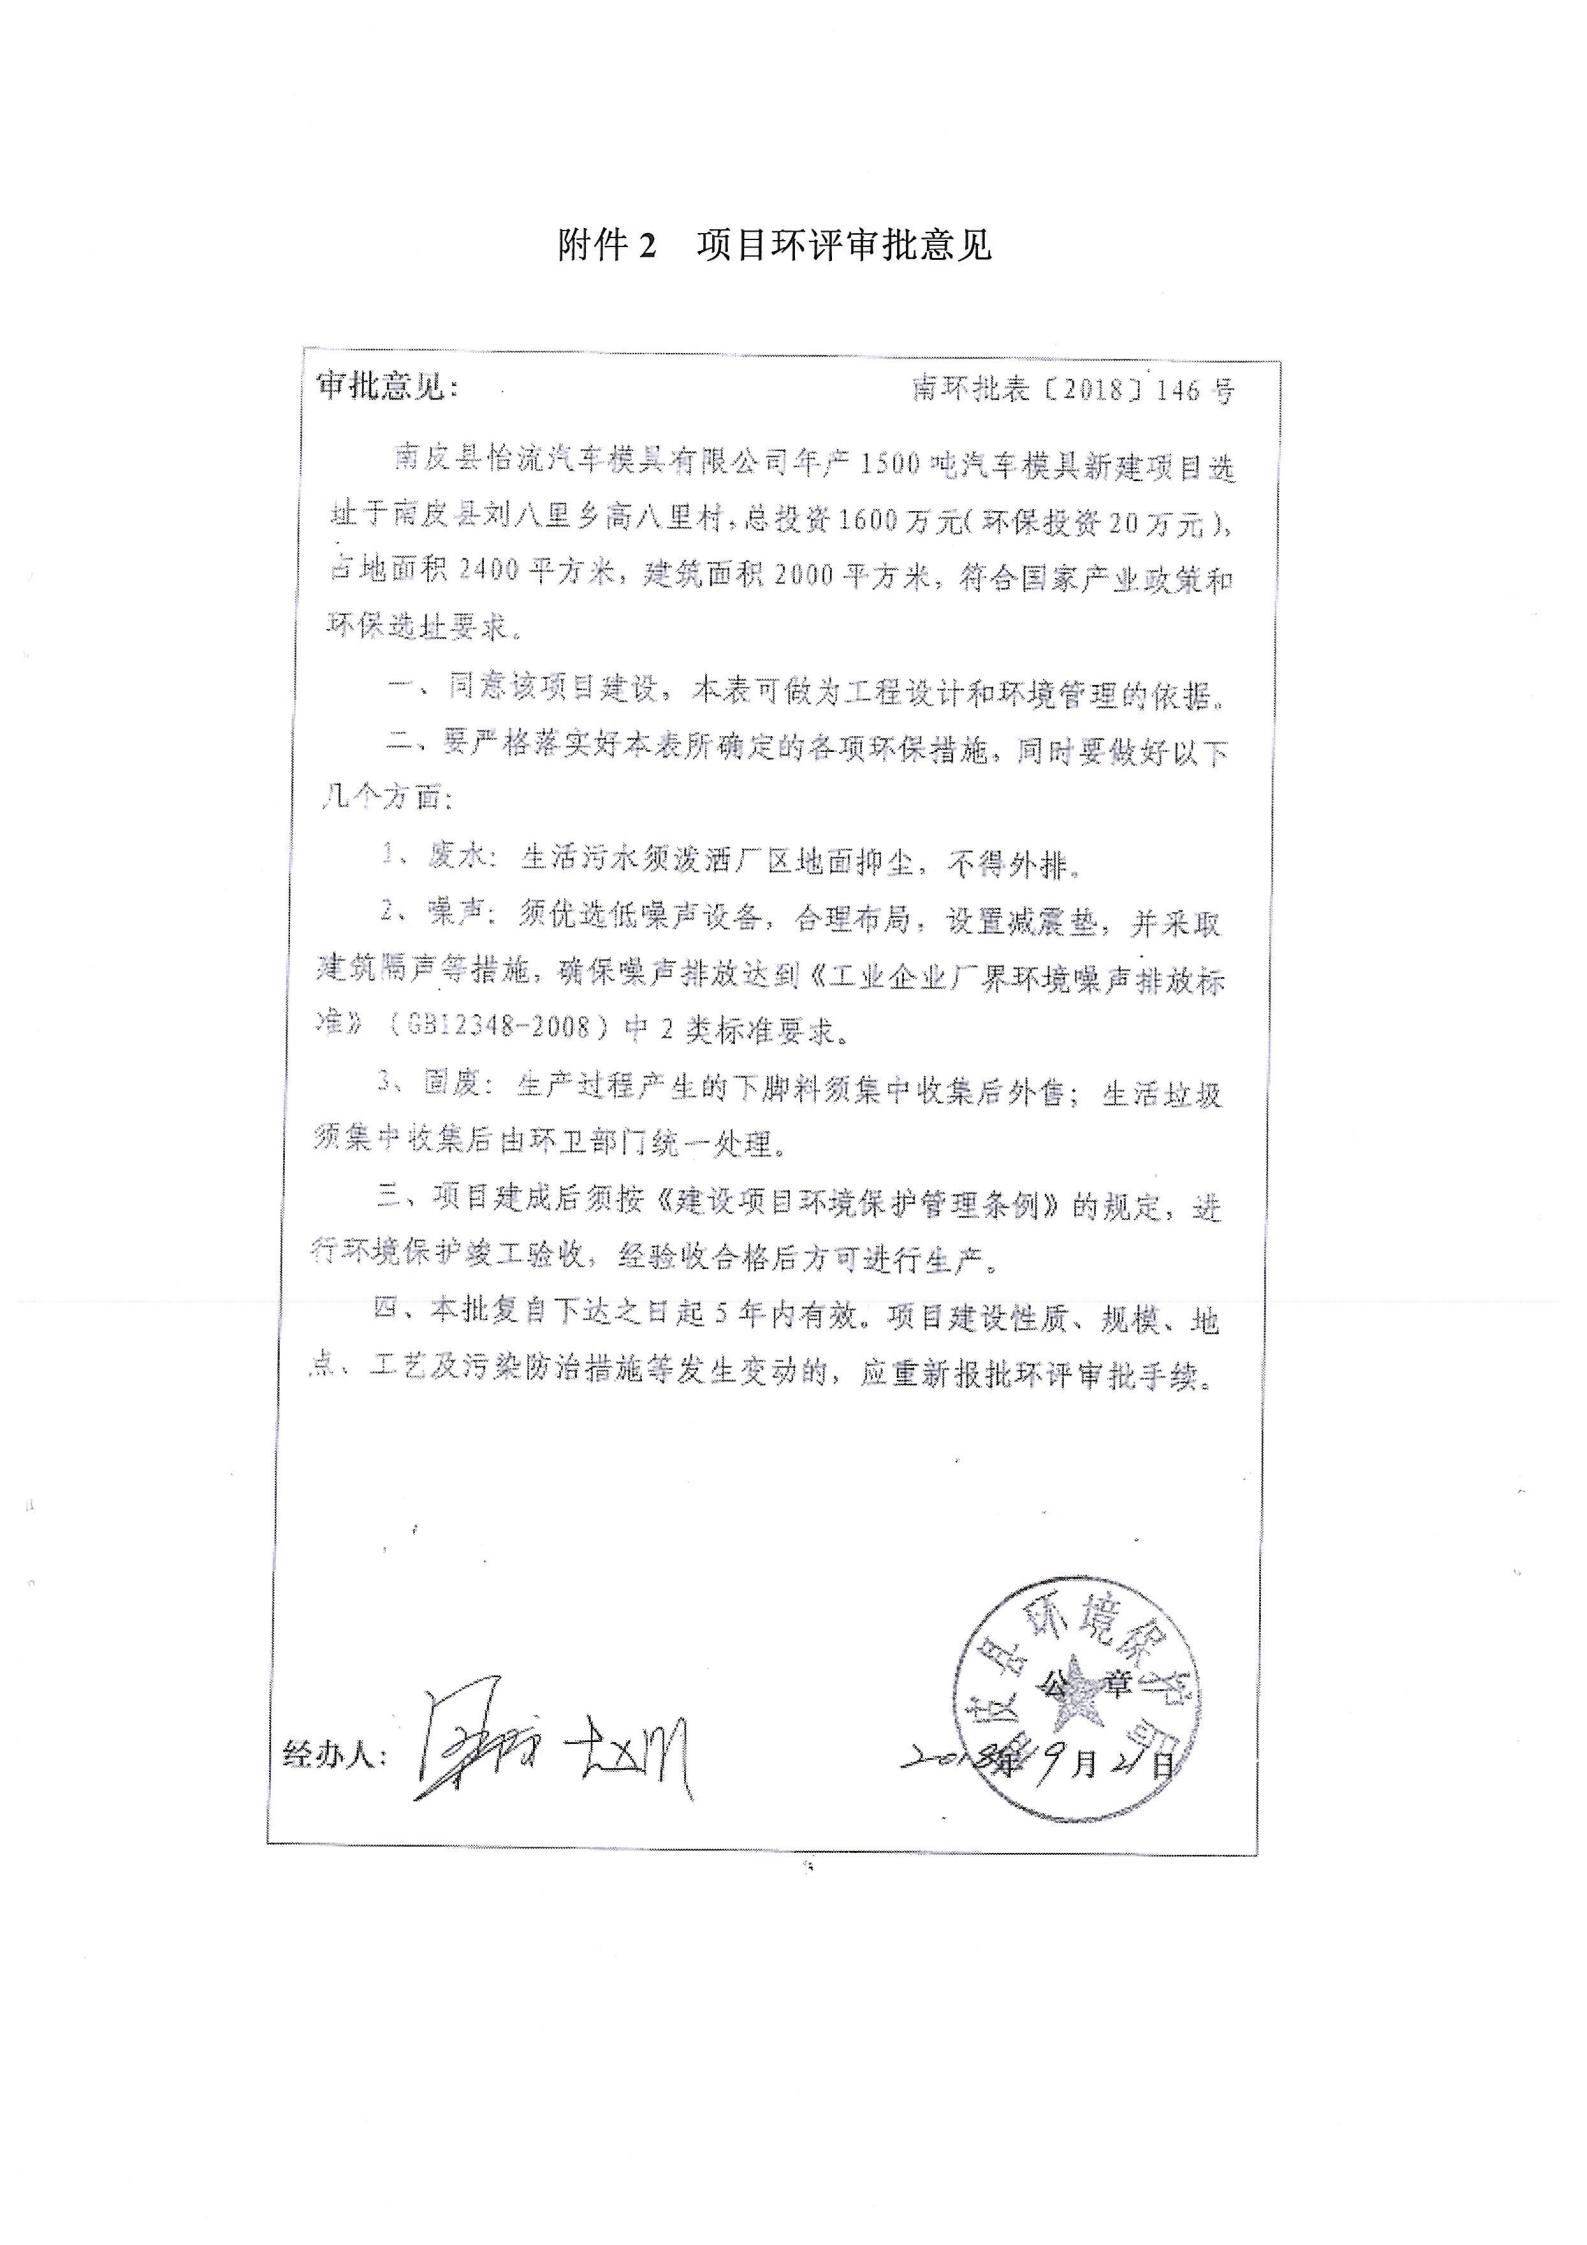 附件2 项目环评审批意见
审批意见：
南环批表〔2018〕146号
南皮县怡流汽车模具有限公司年产1500吨汽车模具新建项目选
址于南皮县刘八里乡高八里村，总投资1600万元（环保投资20万元），
占地面积2400平方米，建筑面积2000平方米，符合国家产业政策和
环保选址要求。
一、同意该项目建设，本表可做为工程设计和环境管理的依据。
二、要严格落实好本表所确定的各项环保措施，同时要做好以下
几个方面：
1、废水：生活污水须泼洒厂区地面抑尘，不得外排。
2、噪声：须优选低噪声设备，合理布局，设置减震垫，并采取
建筑隔声等措施，确保噪声排放达到《工业企业厂界环境噪声排放标
准》（GB12348-2008）中2类标准要求。
3、固废：生产过程产生的下脚料须集中收集后外售；生活垃圾
须集中收集后由环卫部门统一处理。
三、项目建成后须按《建设项目环境保护管理条例》的规定，进
行环境保护竣工验收，经验收合格后方可进行生产。
四、本批复自下达之日起5年内有效。项目建设性质、规模、地
点、工艺及污染防治措施等发生变动的，应重新报批环评审批手续。
南皮县环境保护局
公章
经办人：
2018年9月21日